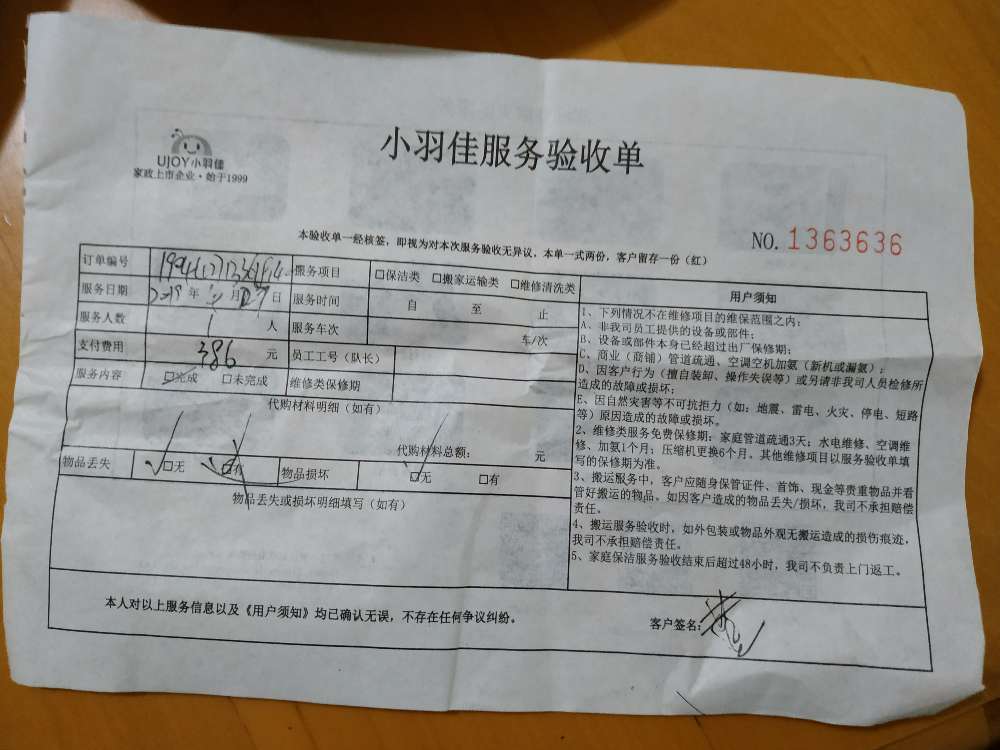 UJOY小羽佳
家政上市企业·始于1999
小羽佳服务验收单
本验收单一经核签，即视为对本次服务验收无异议，本单一式两份，客户留存一份（红）
NO. 1363636
订单编号
服务项目 □保洁类 □搬家运输类 □维修清洗类
服务日期 年 月 27 日
服务时间 自 至 止
服务人数 1 人
服务车次 车/次
支付费用 386 元
员工工号（队长）
服务内容 □完成 □未完成
维修类保修期
代购材料明细（如有）
代购材料总额： 元
物品丢失 □无 □有
物品损坏 □无 □有
物品丢失或损坏明细填写（如有）
用户须知
1、下列情况不在维修项目的维保范围之内：
A、非我司员工提供的设备或部件；
B、设备或部件本身已经超过出厂保修期；
C、商业（商铺）管道疏通、空调空机加氨（新机或漏氨）；
D、因客户行为（擅自装卸、操作失误等）或另请非我司人员检修所
造成的故障或损坏；
E、因自然灾害等不可抗拒力（如：地震、雷电、火灾、停电、短路
等）原因造成的故障或损坏。
2、维修类服务免费保修期：家庭管道疏通3天；水电维修、空调维
修、加氨1个月；压缩机更换6个月。其他维修项目以服务验收单填
写的保修期为准。
3、搬运服务中，客户应随身保管证件、首饰、现金等贵重物品并看
管好搬运的物品。如因客户造成的物品丢失/损坏，我司不承担赔偿
责任。
4、搬运服务验收时，如外包装或物品外观无搬运造成的损伤痕迹，
我司不承担赔偿责任。
5、家庭保洁服务验收结束后超过48小时，我司不负责上门返工。
本人对以上服务信息以及《用户须知》均已确认无误，不存在任何争议纠纷。
客户签名：